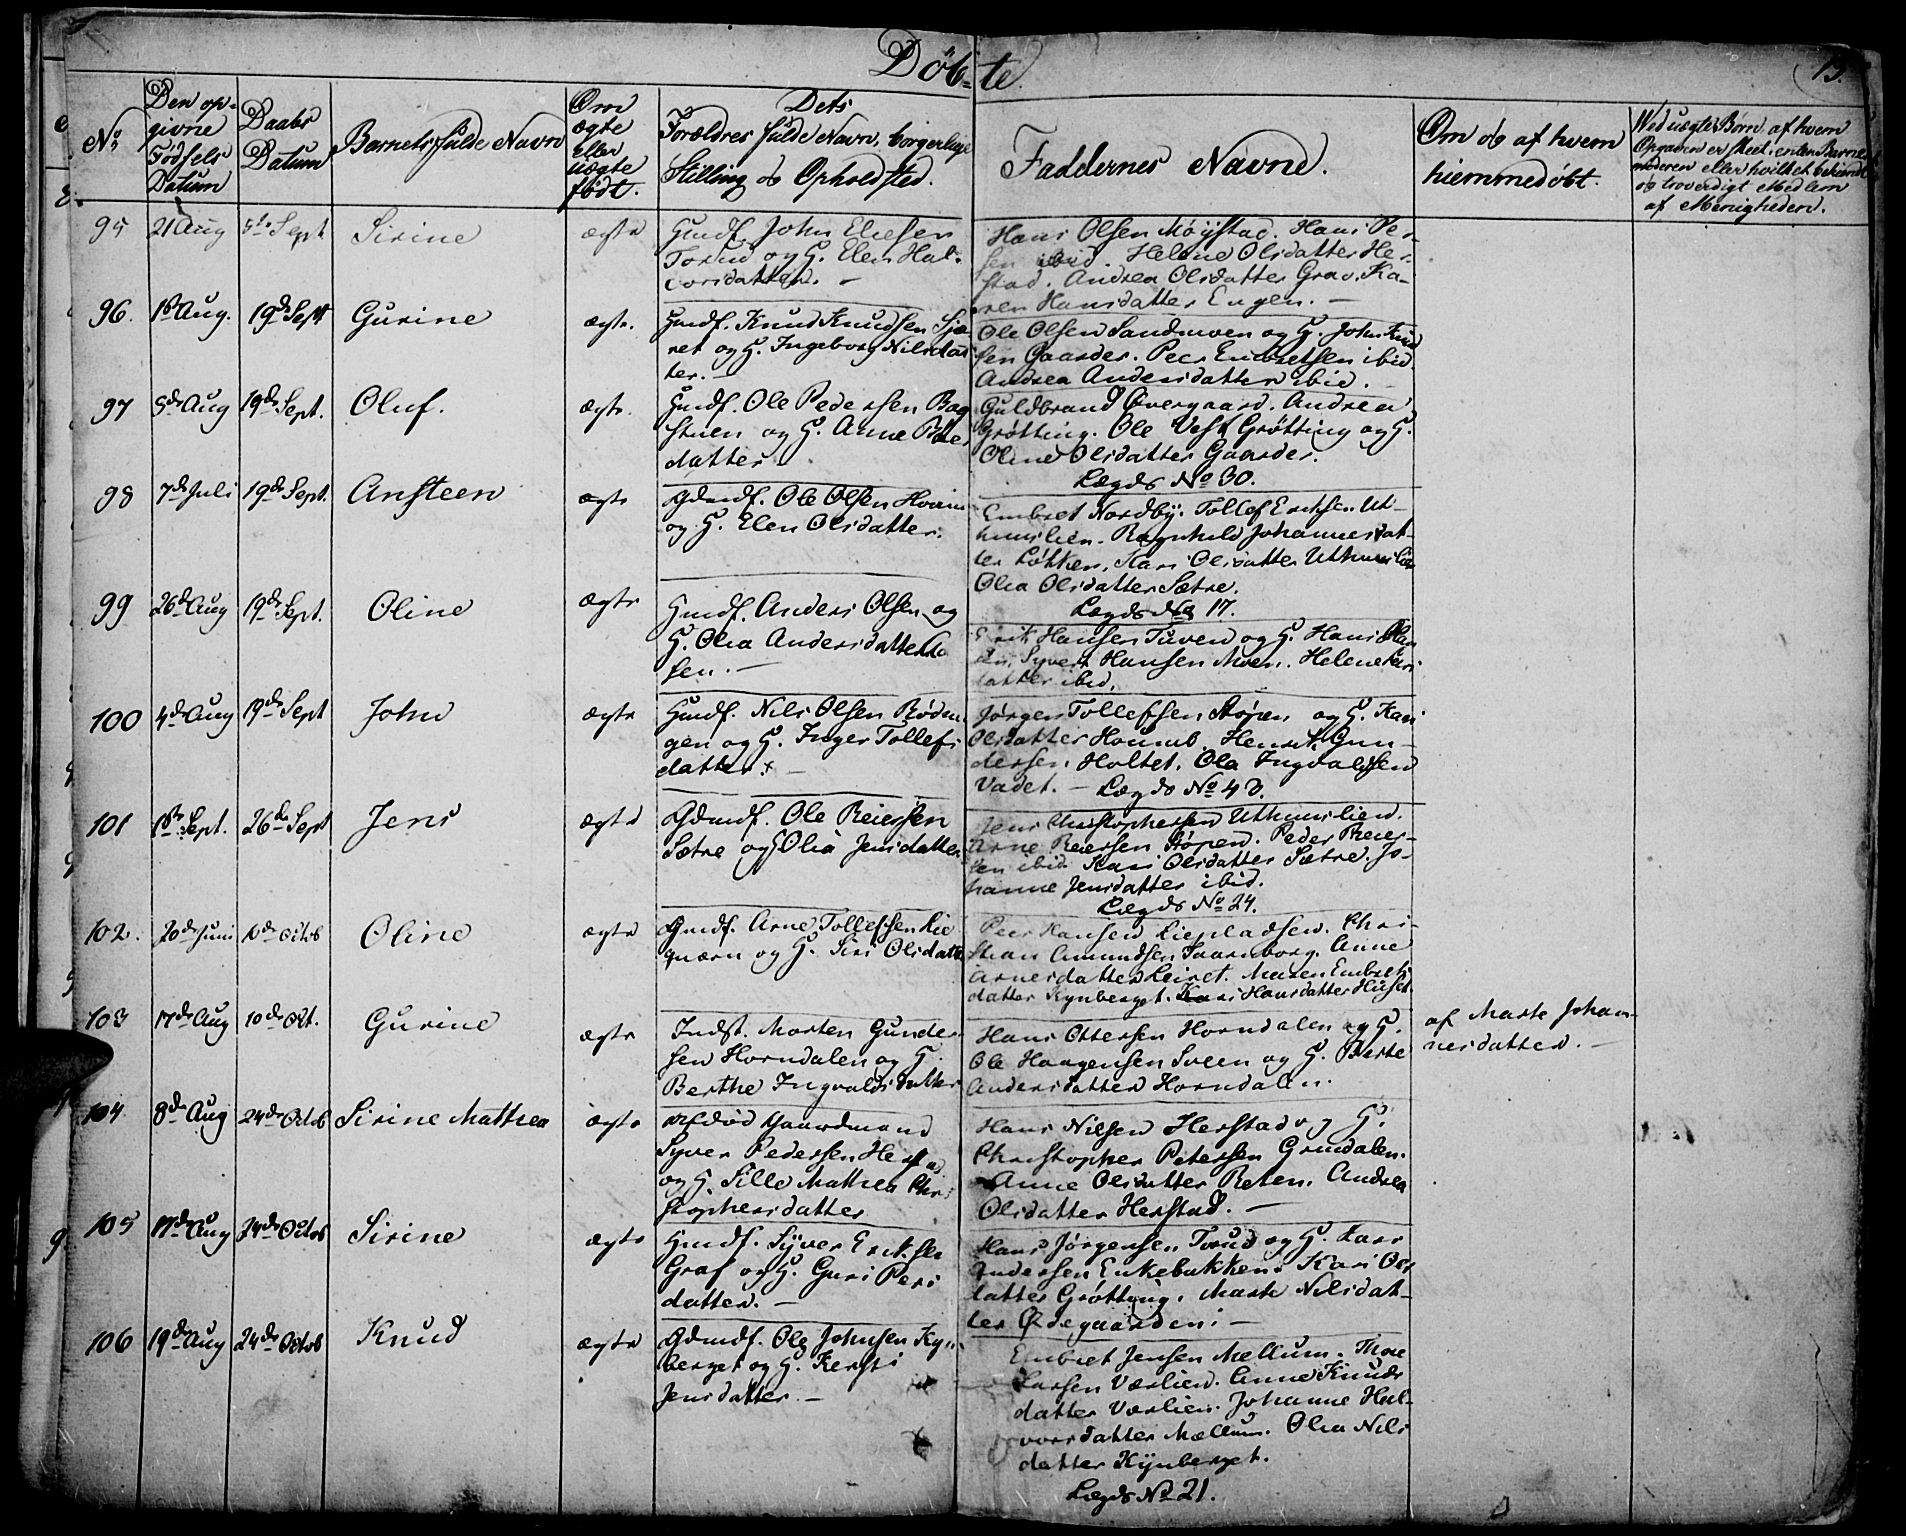 Døb- te.
13.
No
Den op-
givne
Fødsels
Datum
Daabs
Datum
Barnets fulde Navn
Om
ægte
eller
uægte
født.
Dets
Forældres fulde Navn, borgerlige
Stilling og Opholdsted.
Faddernes Navne.
Om og af hvem
hiemmedøbt.
Wed uægte Børn, af hvem
Opgaven er skeet, enten Barne-
moderen eller hvilket bekiendt
og troværdigt Medlem
af Menigheden.
95 21 Aug Sept Sirine ægte
Gmdf. John Eliesen
og H. Elen Hal-
vorsdatter. —
Hans Olsen Møystad. Hans Per-
sen ibid. Helene Olsdatter Her-
stad. Andrea Olsdatter Grav. Ka-
ren Hansdatter Engen. —
96. 1st Aug. 19de Sept Gurine ægte.
Gmdf. Knud Knudsen Sjø-
ret og H. Ingeborg Nilsdat-
ter. —
Ole Olsen Sandmoen og H. John Knud
sen Gaarder. Peer Embretsen ibid.
Andrea Andersdatter ibid. —
97 5de Aug 19de Sept. Oluf. ægte.
Gmdf. Ole Pedersen Bag
stuen og H. Anne Peders
datter
Guldbrand Overgaard. Andrea
Grøtting. Ole Grøtting og H.
Oline Olsdatter Gaarder.
Lægds No 30.
98 7de Juli 19de Sept. Ansteen ægte
Gdmdf. Ole Olsen Hovin
og H. Elen Olsdatter.
Embret Nordby. Tollef Eriksen Ut-
huuslien. Ragnhild Johannesdat-
ter Løkken. Kari Olsdatter Uthuuslien
Olia Olsdatter Sætre.
Lægds No 17.
99 26de Aug 19de Sept. Oline ægte
Gmdf. Anders Olsen og
H. Olia Andersdatter
sen. —
Erik Hansen Tuven og H. Hans
Syver Hansen Moen. Helene
datter ibid.
100 4de Aug 19de Sept John ægte
Gmdf. Nils Olsen Rødn-
gen og H. Inger Tollefs
datter. —
Jørgen Tollefsen Støpen og H. Kari
Olsdatter Henrik Gun-
dersen, Holtet. Ola Ingvaldsen
Vadet. — Lægds No 43.
101 1ste Sept. 26de Sept Jens ægte
Gdmdf. Ole Reiersen
Sætre og H Olia Jensdatter
Jens Christophersen Uthuuslien.
Arne Reiersen Støpen. Peder Reier-
sen ibid. Kari Olsdatter Sætre. Jo-
hanne Jensdatter ibid.
Lægds No 24.
102. 20de Juni 10de Octob Oline ægte
Gmdf. Arne Tollefsen Lie
qværn og H. Siri Olsdatter
Peer Hansen Liepladsen. Chri-
stian Amundsen Anne
Arnesdatter Leiret. Maren Embrets
datter Kynberget. Kari Hansdatter Huset.
103 17de Aug 10de Oct. Gurine ægte
Indst. Morten Gunder-
sen Horndalen og H.
Berthe Ingvaldsdatter
Hans Ottersen Horndalen og H.
Ole Haagensen Sveen og H. Berte
Andersdatter Horndalen.
af Marte Johan-
nesdatter. —
104 8de Aug 24de Octob Sirine Mathea ægte
Afdød Gaardmand
Syver Pedersen Herstad
og H. Sille Mathea Chri
stophersdatter
Hans Nilsen Herstad og H.
Christopher Petersen Grindalen.
Anne Olsdatter Reten. Andrea
Olsdatter Herstad. —
105 17de Aug 24de Octob Sirine ægte
Gmdf. Syver Eriksen
Graf og H. Guri Pers
datter. —
Hans Jørgensen Torud og H. Lars
Andersen Enkebakken. Kari Ols
datter Grøtting. Marte Nilsdat-
ter Ødegaarden. —
106 19de Aug 24de Octob Knud ægte
Gdmdf. Ole Johnsen Kyn-
berget og H. Kersti
Jensdatter. —
Embret Jensen Mellum. Thore
Larsen Værlien. Anne Knuds
datter Værlien. Johanne Hal-
vorsdatter Mællum. Olia Nils
datter Kynberget.
Lægds No 21.